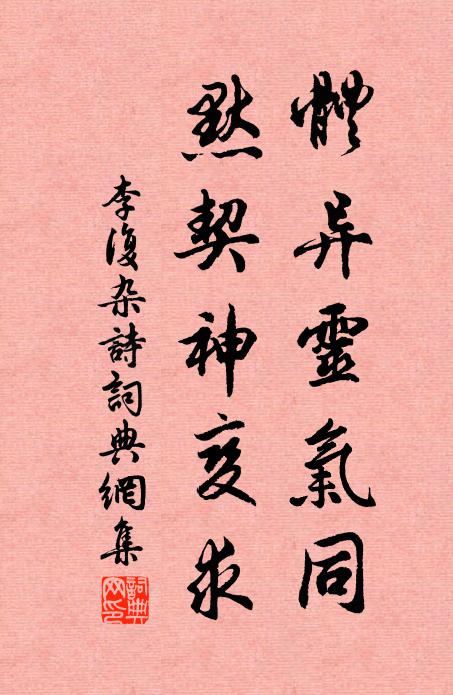 體异靈氣同
黙契神交求
李復杂詩詞典網集
詞典
网印